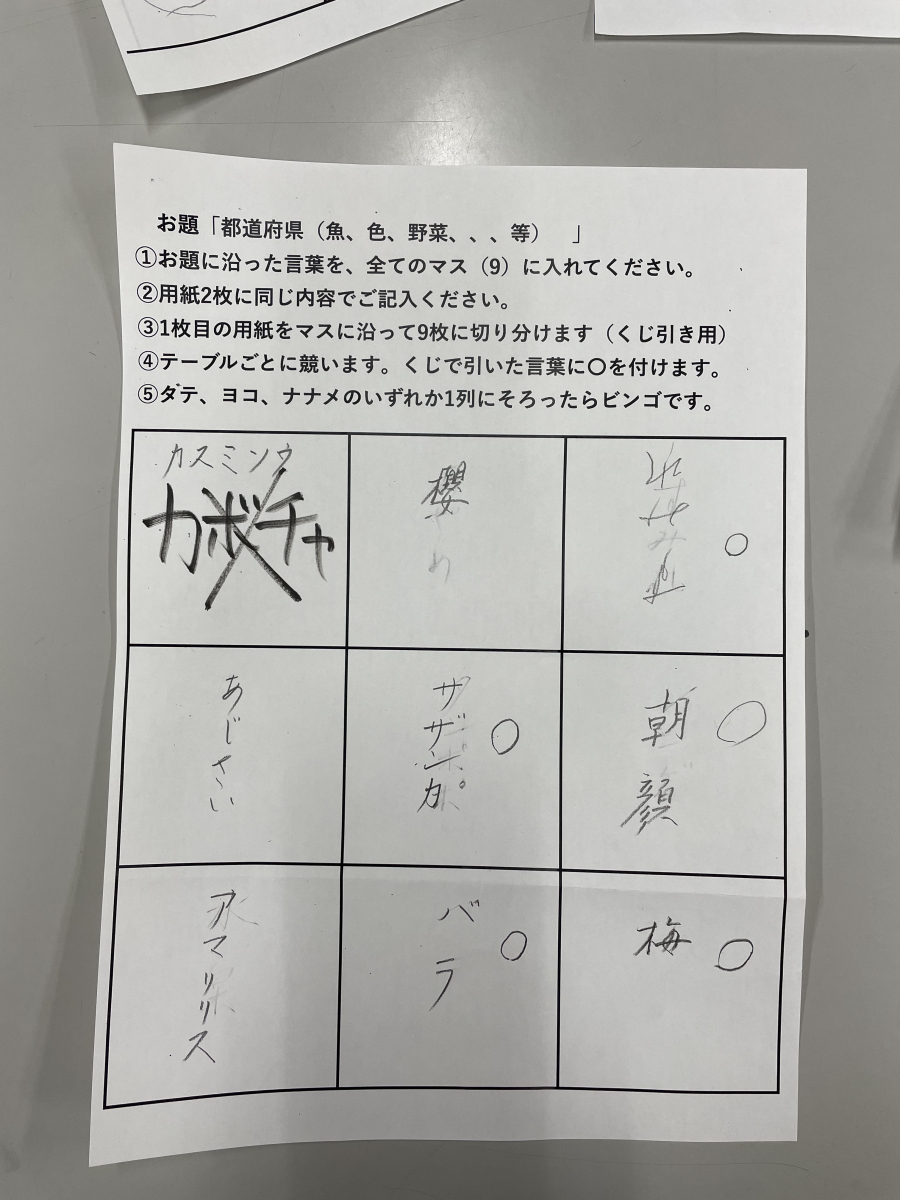 お題「都道府県（魚、色、野菜、、、等）　」
①お題に沿った言葉を、全てのマス（9）に入れてください。
②用紙2枚に同じ内容でご記入ください。
③1枚目の用紙をマスに沿って9枚に切り分けます（くじ引き用）
④テーブルごとに競います。くじで引いた言葉に〇を付けます。
⑤タテ、ヨコ、ナナメのいずれか1列にそろったらビンゴです。
カスミソウ
カボチャ
櫻
あじさい
サザンカ
朝顔
アマリリス
バラ
梅